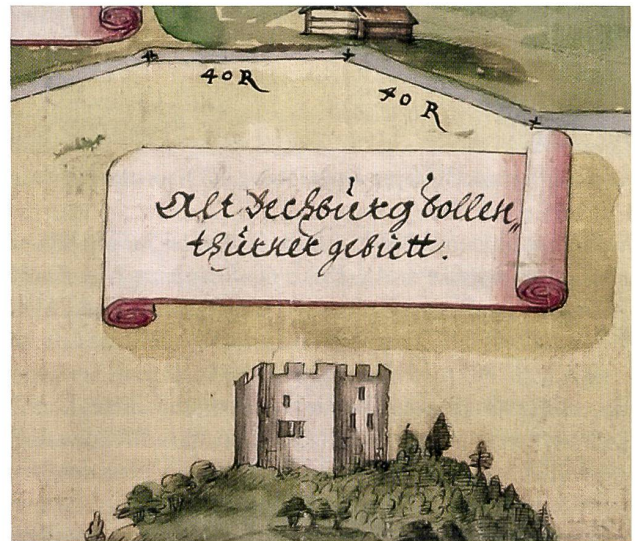 40 R
40 R
Alt Bechbürg Sollen„
thürner gebiett.